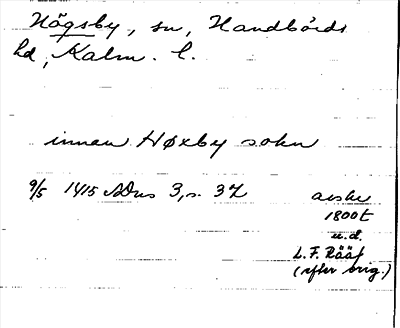 Högsby, sn, Handbörds
hd, Kalm. l.
innan Høxby sokn
9/5 1415 ADns 3, s. 37 avskr
1800t
u.d.
L. F. Rääf
(efter orig.)